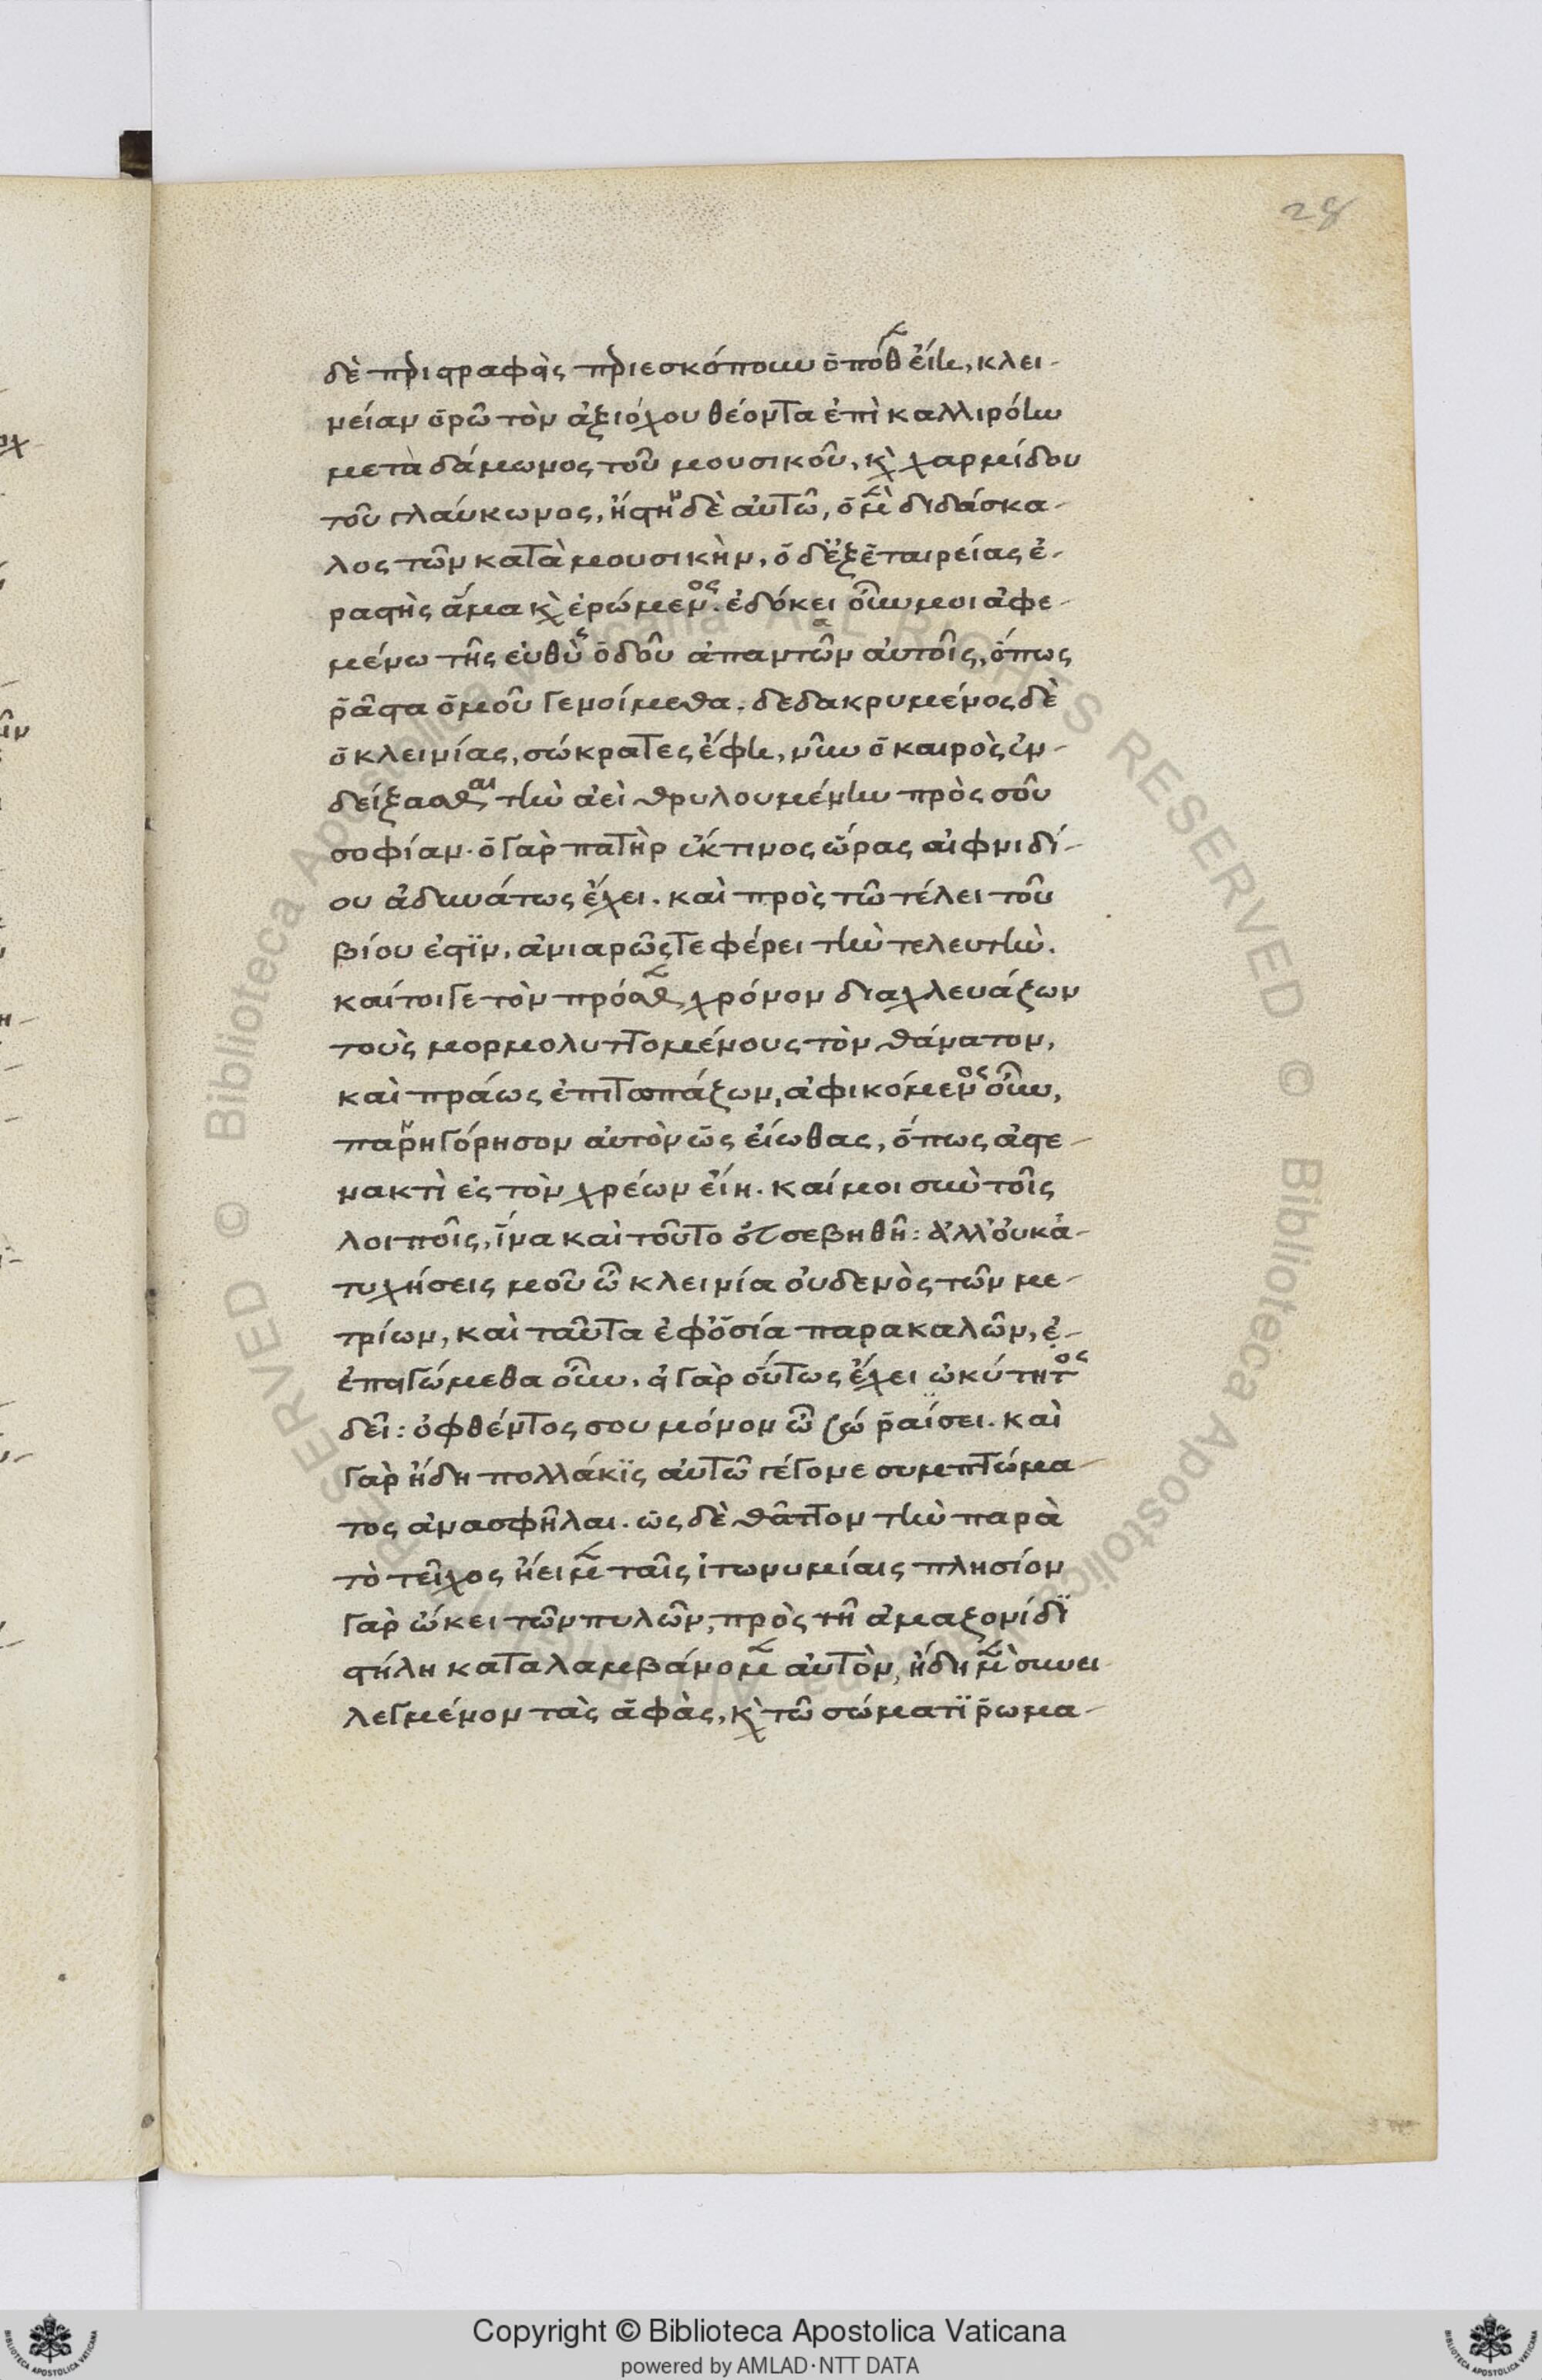 28
δὲ περιστραφεὶς περιεσκόπουν ὁπόθεν εἴη, κλει-
νίαν ὁρῶ τὸν ἀξιόχου θέοντα ἐπὶ καλλιρόην
μετὰ δάμωνος τοῦ μουσικοῦ, κὶ χαρμίδου
τοῦ γλαύκωνος, ἤστην δὲ αὐτῶ, ὁ μὲν διδάσκα-
λος τῶν κατὰ μουσικὴν, ὁ δ' ἐξ ἑταιρείας ἐ-
ραστὴς ἅμα κὶ ἐρώμενος. ἐδόκει οὖν μοι ἀφε-
μένω τῆς εὐθὺς ὁδοῦ ἀπαντᾶν αὐτοῖς, ὅπως
ῥᾶστα ὁμοῦ γενοίμεθα. δεδακρυμένος δὲ
ὁ κλεινίας, σώκρατες ἔφη, νῦν ὁ καιρὸς ἐν-
δείξασθαι τὴν ἀεὶ θρυλουμένην πρὸς σοῦ
σοφίαν. ὁ γὰρ πατὴρ ἔκτινος ὥρας αἰφνιδί-
ου ἀδυνάτως ἔχει. καὶ πρὸς τῶ τέλει τοῦ
βίου ἐστὶν, ἀνιαρῶς τε φέρει τὴν τελευτὴν.
καίτοι γε τὸν πρόσθεν χρόνον διαχλευάζων
τοὺς μορμολυττομένους τὸν θάνατον,
καὶ πράως ἐπιτωθάζων, ἀφικόμενος οὖν,
παρηγόρησον αὐτὸν ὡς εἴωθας, ὅπως ἀστε-
νακτὶ ἐς τὸν χρέων εἴη. καί μοι σὺν τοῖς
λοιποῖς, ἵνα καὶ τοῦτο εὐσεβηθῆ: ἀλλ' οὐκ ἀ-
τυχήσεις μοῦ ὦ κλεινία οὐδενὸς τῶν με-
τρίων, καὶ ταῦτα ἐφ' ὅσία παρακαλῶν, ἐ-
ἐπειγώμεθα οὖν. εἰ γὰρ οὕτως ἔχει ὠκύτητος
δεῖ: ὀφθέντος σου μόνον ὦ σώ ῥαΐσει. καὶ
γὰρ ἤδη πολλάκις αὐτῶ γέγονε συμπτώμα-
τος ἀνασφῆλαι. ὡς δὲ θᾶττον τὴν παρὰ
τὸ τεῖχος ἤειμεν ταῖς ἰτωνυμίαις πλησίον
γὰρ ὤκει τῶν πυλῶν, πρὸς τῆ ἀμαζονίδι
στήλη καταλαμβάνομεν αὐτὸν, ἤδη μὲν συνει
λεγμένον τὰς ἁφὰς, κὶ τῶ σώματι ῥωμα-
Copyright © Biblioteca Apostolica Vaticana
powered by AMLAD·NTT DATA